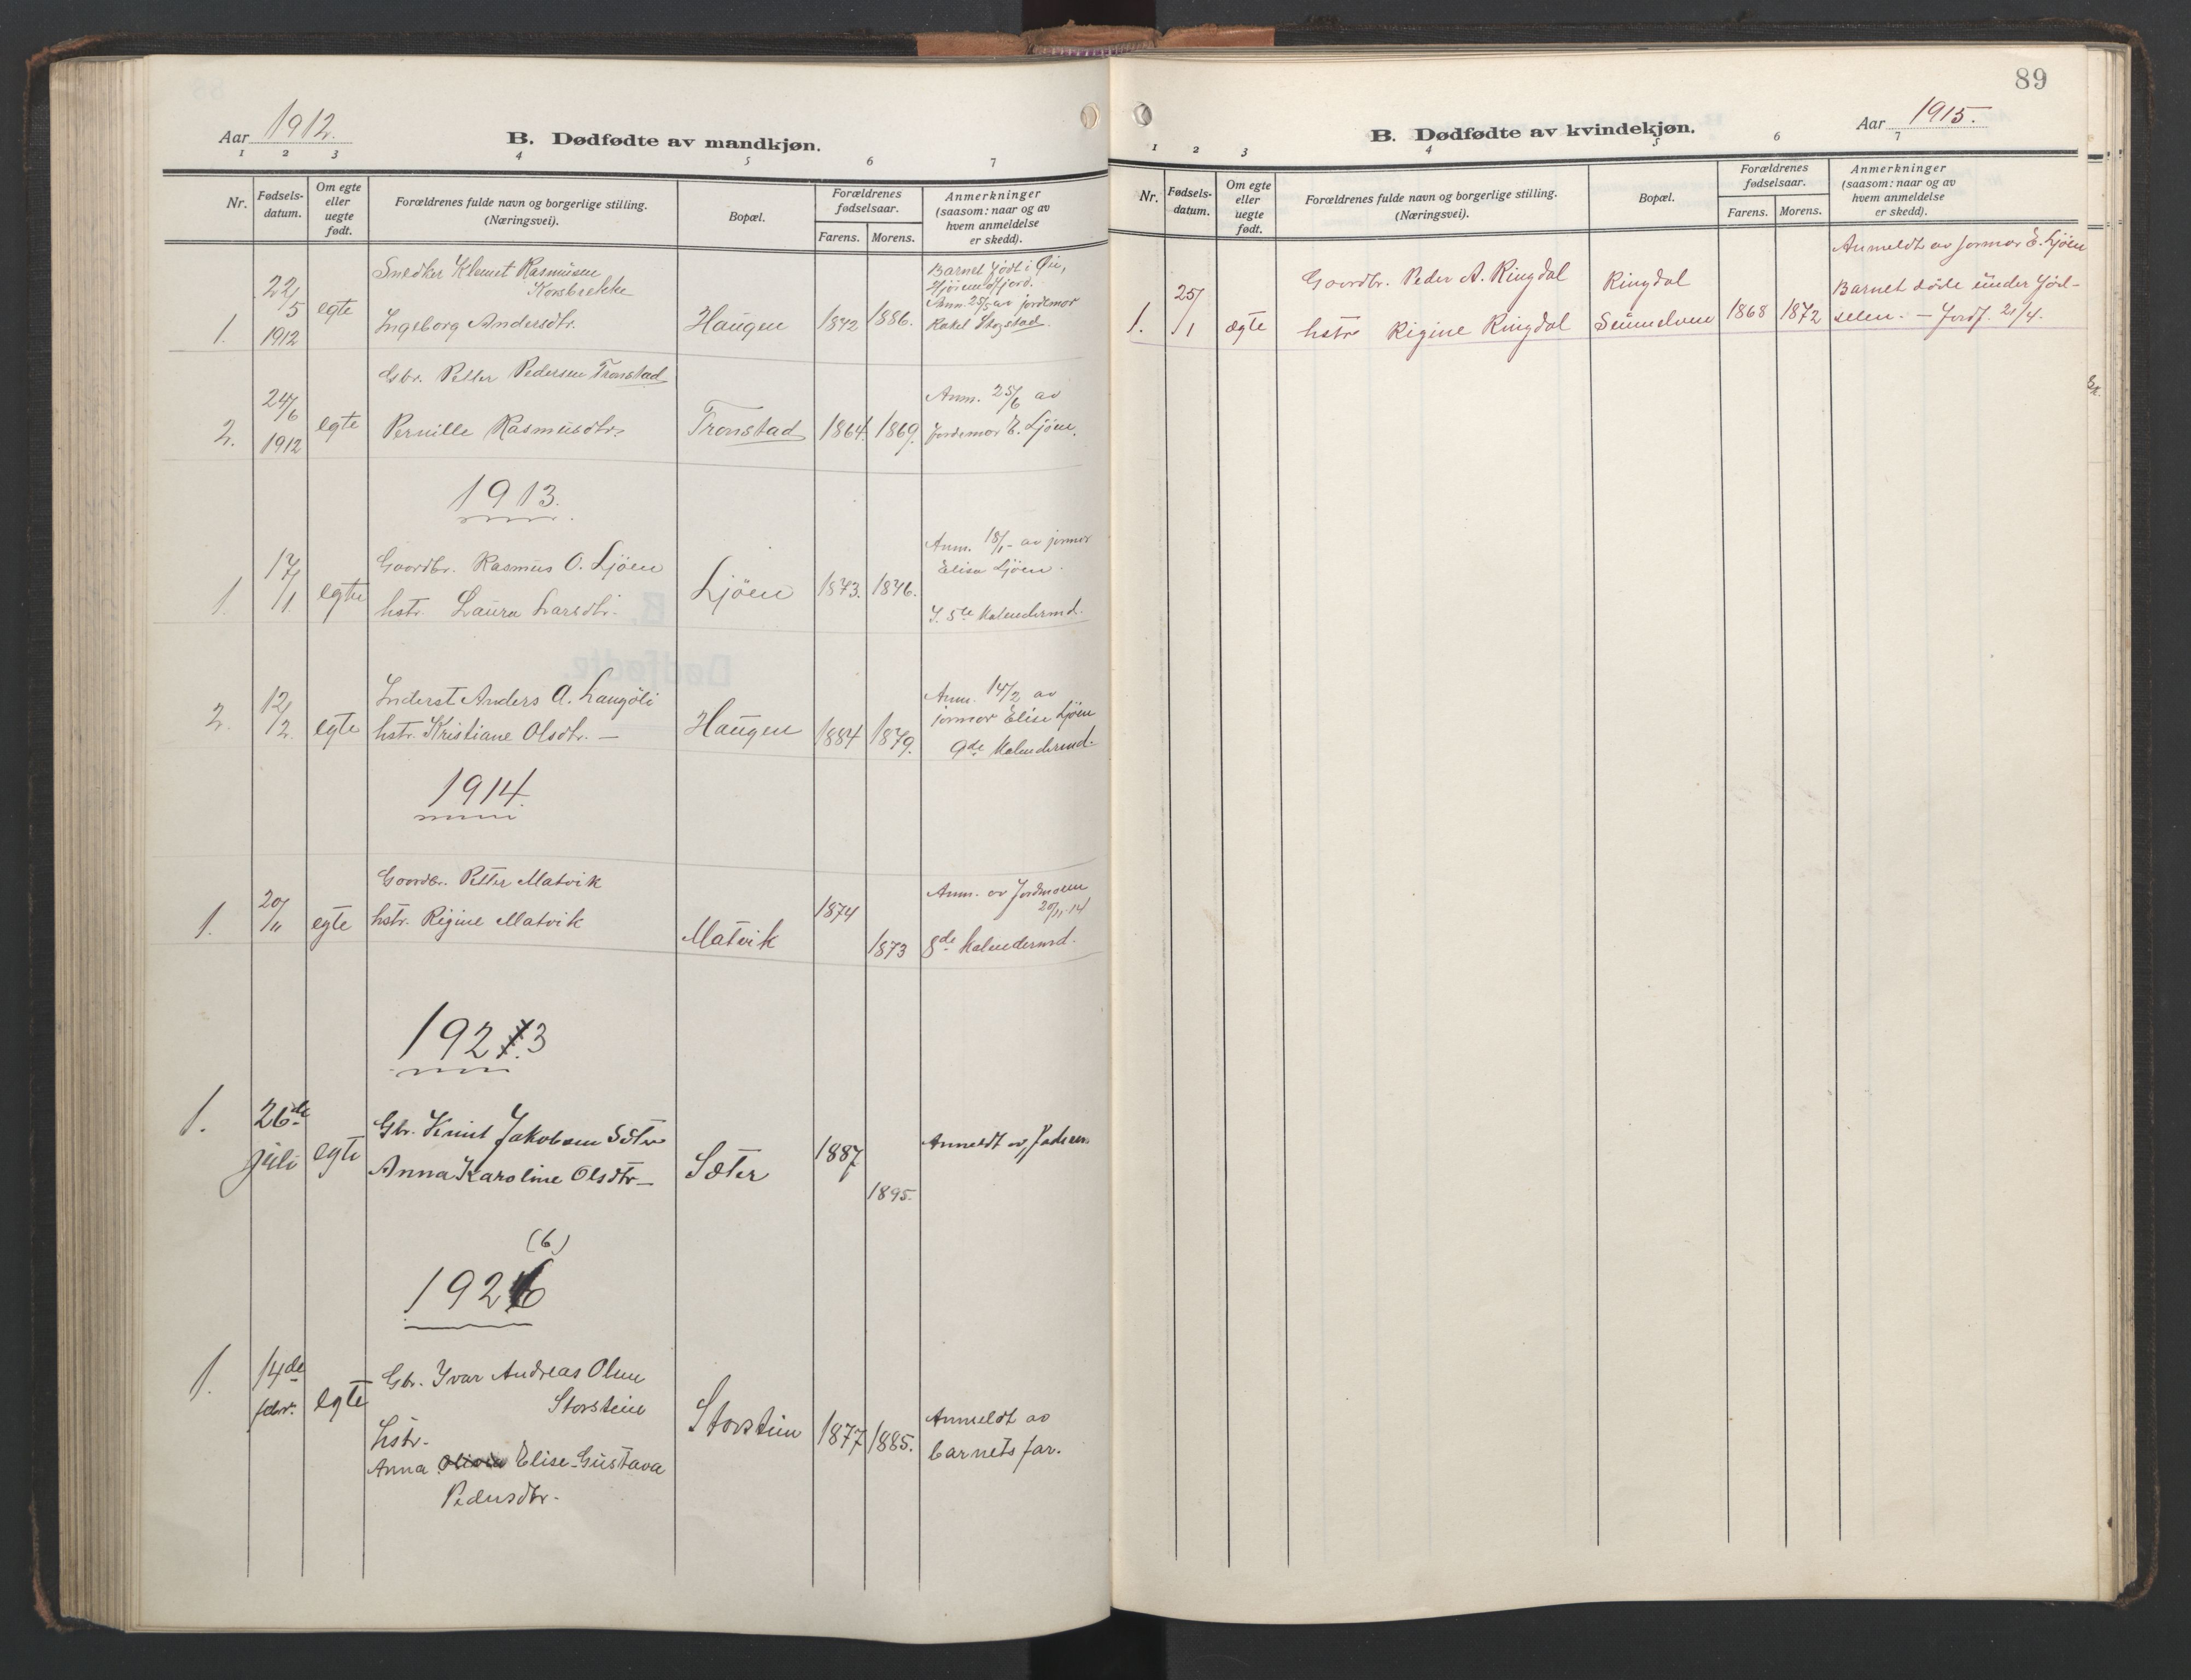 Aar 1912.
B. Dødfødte av mandkjøn.
1 2 3 4 5 6 7
Nr.
Fødsels-
datum.
Om egte
eller
uegte
født.
Forældrenes fulde navn og borgerlige stilling.
(Næringsvei).
Bopæl.
Forældrenes
fødselsaar.
Farens. Morens.
Anmerkninger
(saasom: naar og av
hvem anmeldelse
er skedd).
1. 22/5 1912 egte
Snedker Klemet Rasmusen
Korsbrekke
Ingeborg Andersdtr.
Haugen 1842 1886.
Barnet født i Øie,
Hjørendfjord.
Anm. 25/5 av jordemor
Rakel Skogstad.
2. 24/6 1912 egte
Gbr. Petter Pedersen Tronstad
Pernille Rasmusdtr.
Tronstad 1864. 1869.
Anm. 25/6 av
Jordemor E. Ljöen.
1913.
1. 17/1 egte
Gaardbr. Rasmus O. Ljöen
hstr. Laura Larsdtr.
Ljöen 1873. 1876.
Anm. 18/1 - av jormor
Elisa Ljöen.
I. 5te Kalendermd.
2. 12/2. egte
Inderst Anders A. Langöli
hstr. Kristiane Olsdtr. —
Haugen 1884 1879.
Anm. 14/2 av
jormor Elise Ljöen
9de Kalendermd.
1914.
1. 20/11 egte
Gaardbr. Petter Matvik
hstr. Rigine Matvik
Matvik 1874 1873
Anm. av Jordmoren
20/11-14
8de Kalendermd.
1923
1. 26de juli egte
Gbr. Knut Jakobsen Sæter
Anna Karoline Olsdtr —
Sæter 1887 1895.
Anmeldt av Faderen
(6)
1926
1. 14de febr. egte
Gbr. Ivar Andreas Olsen
Storstein
hstr.
Anna Olivia Elise-Gustava
Pedersdtr.
Storstein 1877 1885.
Anmeldt av
barnets far.
89
Aar 1915.
B. Dødfødte av kvindekjøn.
1 2 3 4 5 6 7
Nr.
Fødsels-
datum.
Om egte
eller
uegte
født.
Forældrenes fulde navn og borgerlige stilling.
(Næringsvei).
Bopæl.
Forældrenes
fødselsaar.
Farens. Morens.
Anmerkninger
(saasom: naar og av
hvem anmeldelse
er skedd).
1. 25/1 ægte
Gaardbr. Peder A. Ringdal
hstr Rigine Ringdal
Ringdal
Sunnelven
1868 1872
Anmeldt av jormor E. Ljöen
Barnet döde under föd-
selen. — Jordf. 21/4.